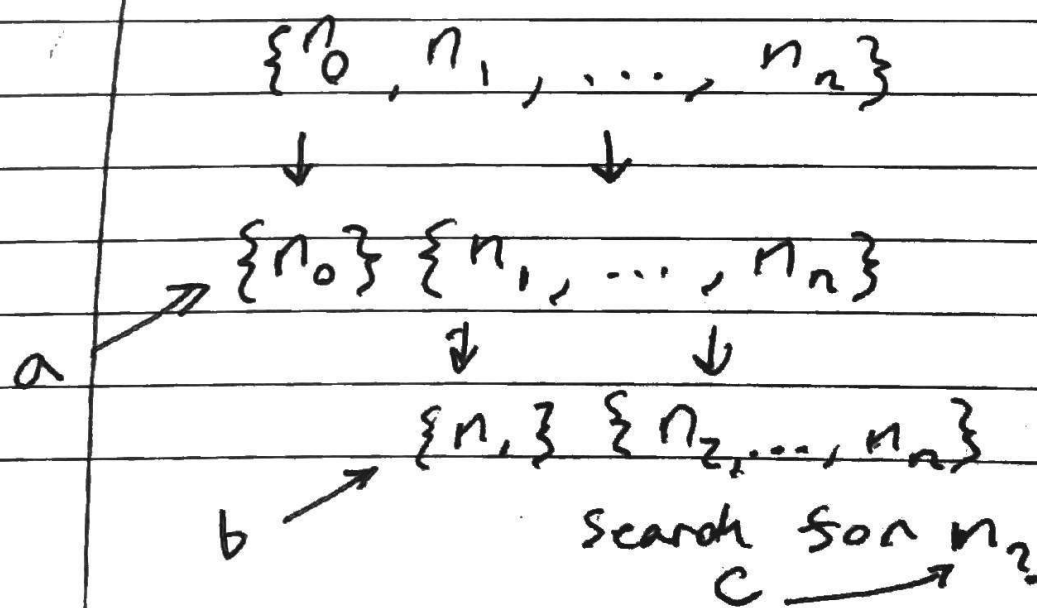 {n₀, n₁, ..., nₙ}
↓ ↓
{n₀} {n₁, ..., nₙ}
a
↓ ↓
{n₁} {n₂, ..., nₙ}
b
search for n₂
c